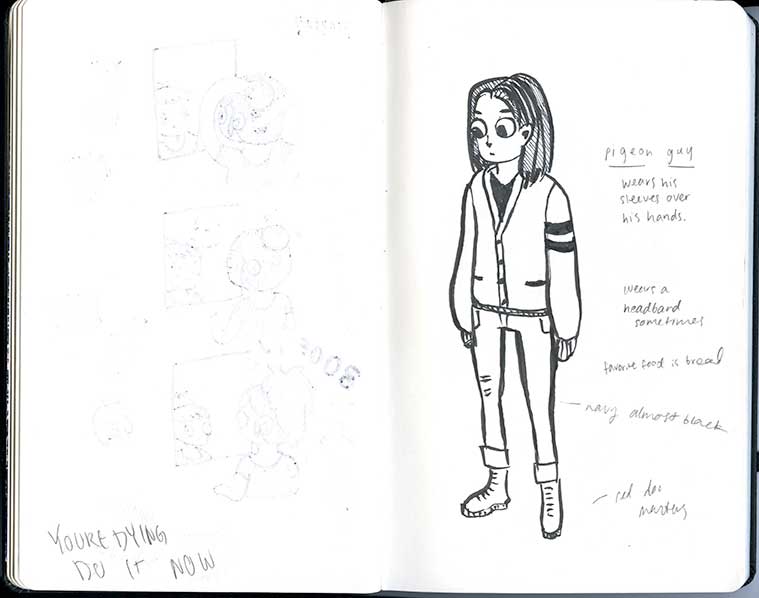 YOU'RE DYING
DO IT NOW
pigeon guy
wears his
sleeves over
his hands.
wears a
headband
sometimes
favorite food is bread
navy almost black
red doc
martens